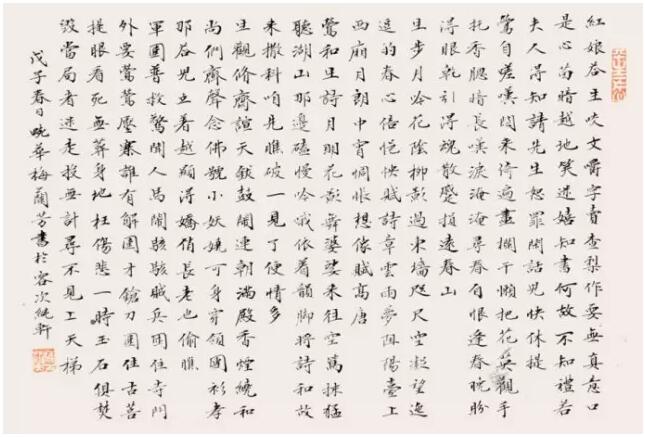 紅娘答生咬文嚼字青查梨作妄無真意口
是心苗暗越地笑迷嬉知書何故不知禮若
夫人得知請先生恕罪閒話兒快休提
鶯自嗟嘆悶來倚遍畫欄干懶把花英觀手
托香腮暗長嘆淚淹淹尋春自恨逢春晚盼
得眼乾引得魂散蹙損遠春山
生步月吟花陰柳影過東墻咫尺空凝望迤
逗的春心倍怏怏賦詩章雲雨夢阻陽臺上
西廂月朗中宵惆悵想像賦高唐
鶯和生詩月明花影舞婆娑来往空篤抹猛
聽湖山那邊磕慢吟哦依着韻脚将詩和故
来撒科咱先瞧破一見了便情多
生觀修齋諠天鈸鼓鬧連朝滿殿香煙繞和
尚們齊聲念佛號小妖嬈可身穿領團衫孝
那答兒立着越顯得嬌俏長老也偷瞧
軍圍普救驚聞人馬鬧駭駭賊兵困住寺門
外要鶯鶯壓寨誰有解圍才鎗刀圍住古菩
提眼看死無葬身地枉傷悲一時玉石俱焚
毀當局者迷走投無計尋不見上天梯
戊子春日畹華梅蘭芳書於容次純軒